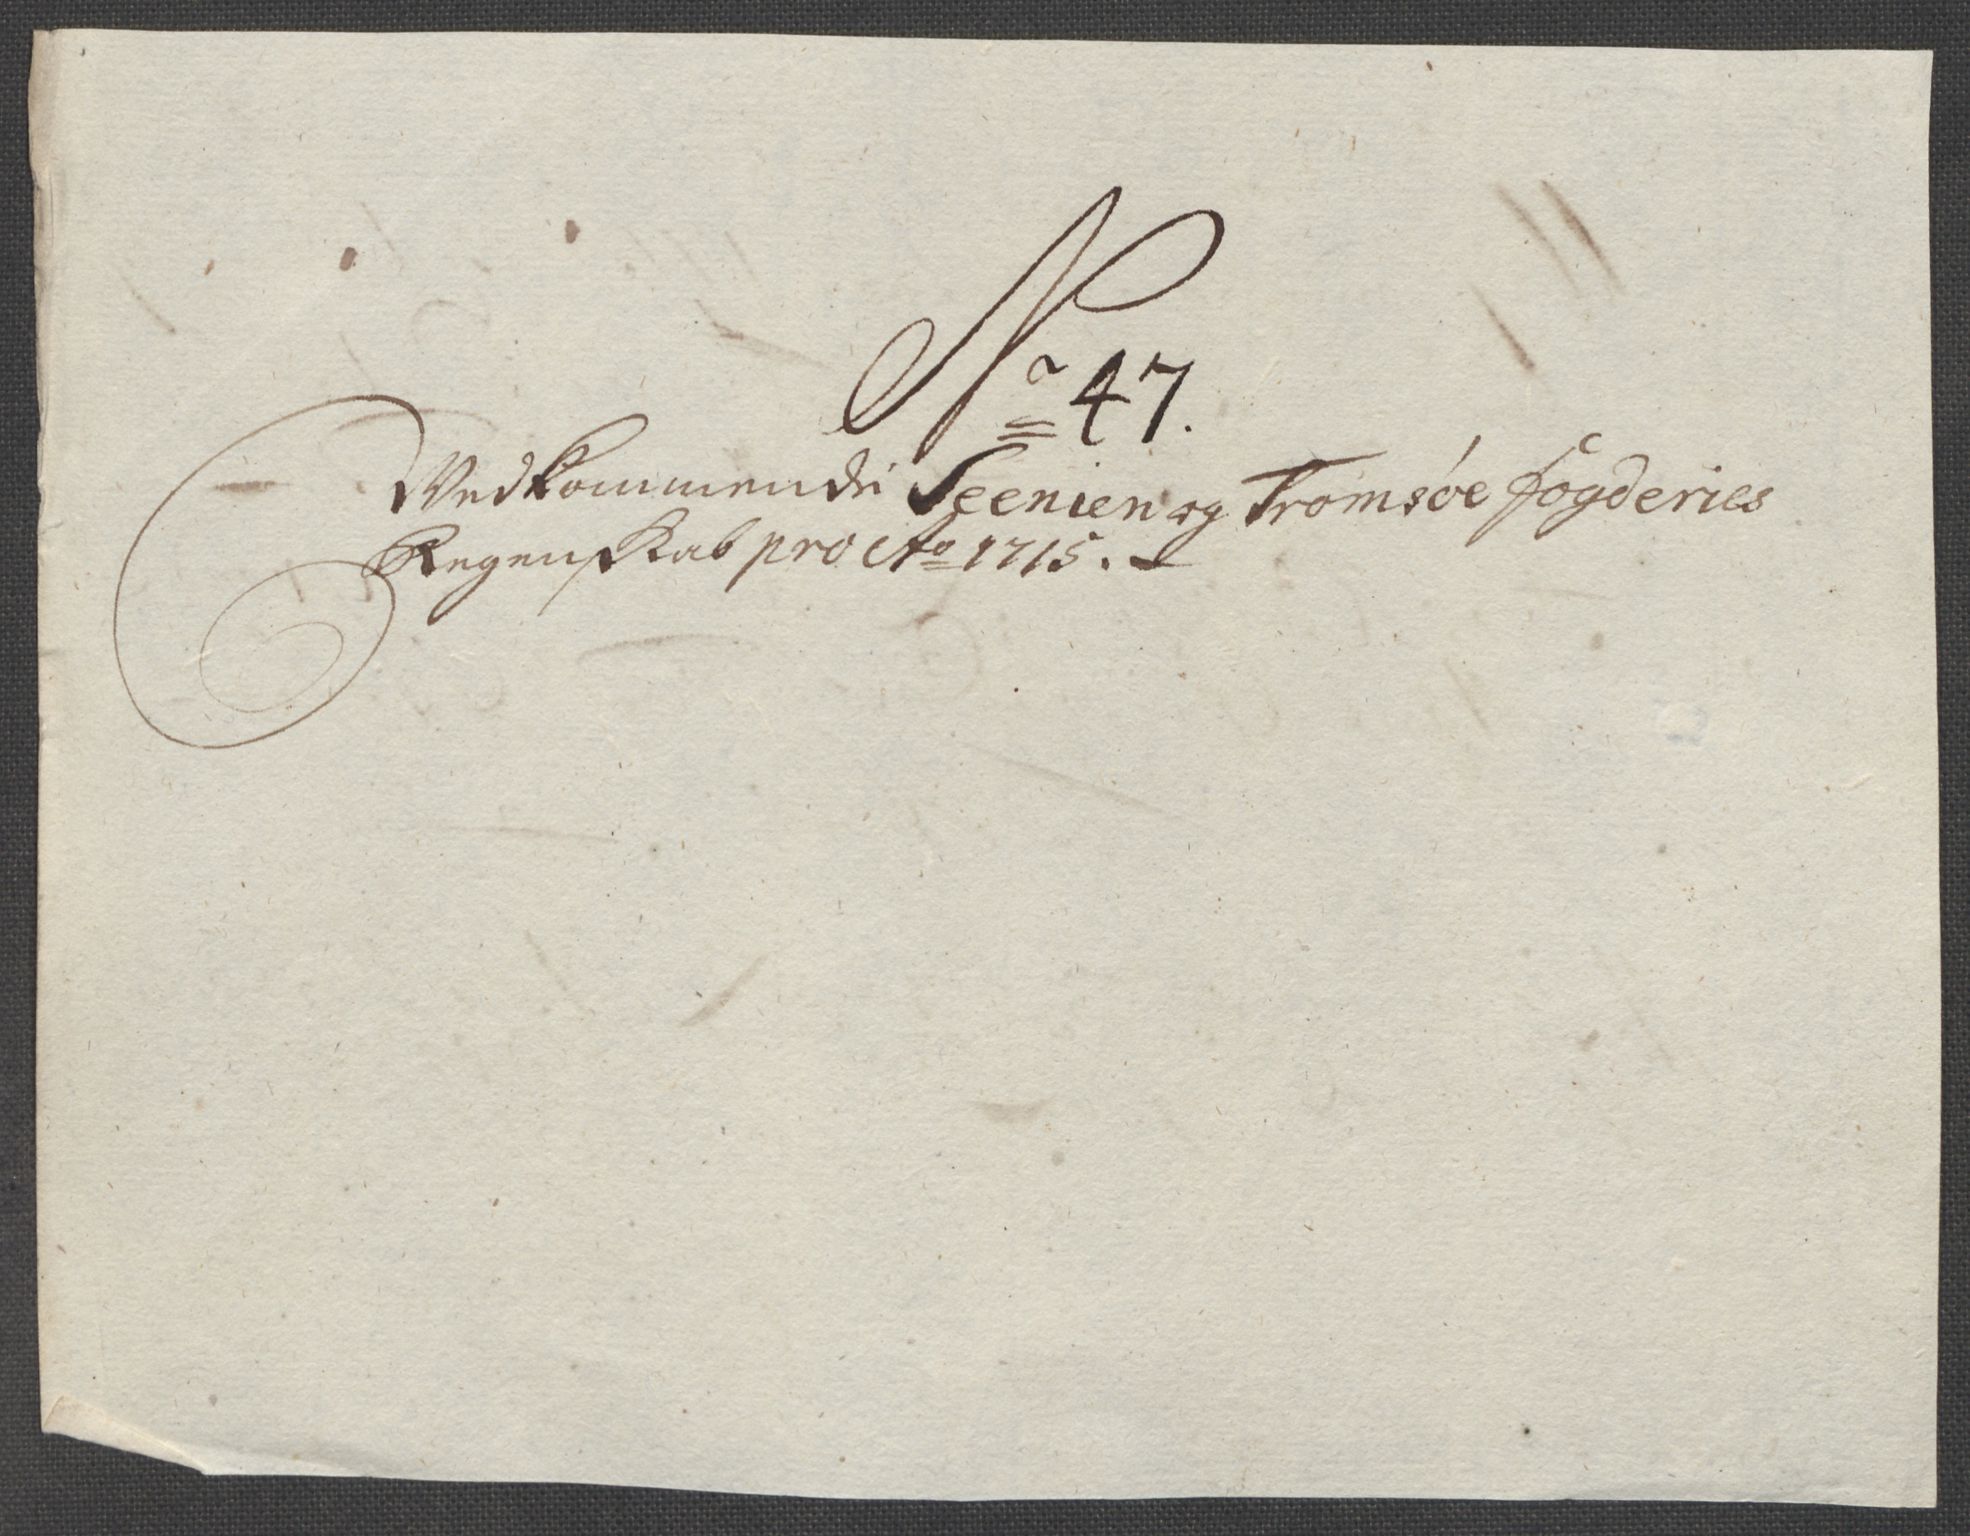 No 47.
Vedkommende Seenien og Tromsøe fogderies
Regenskab pro Ao 1715.